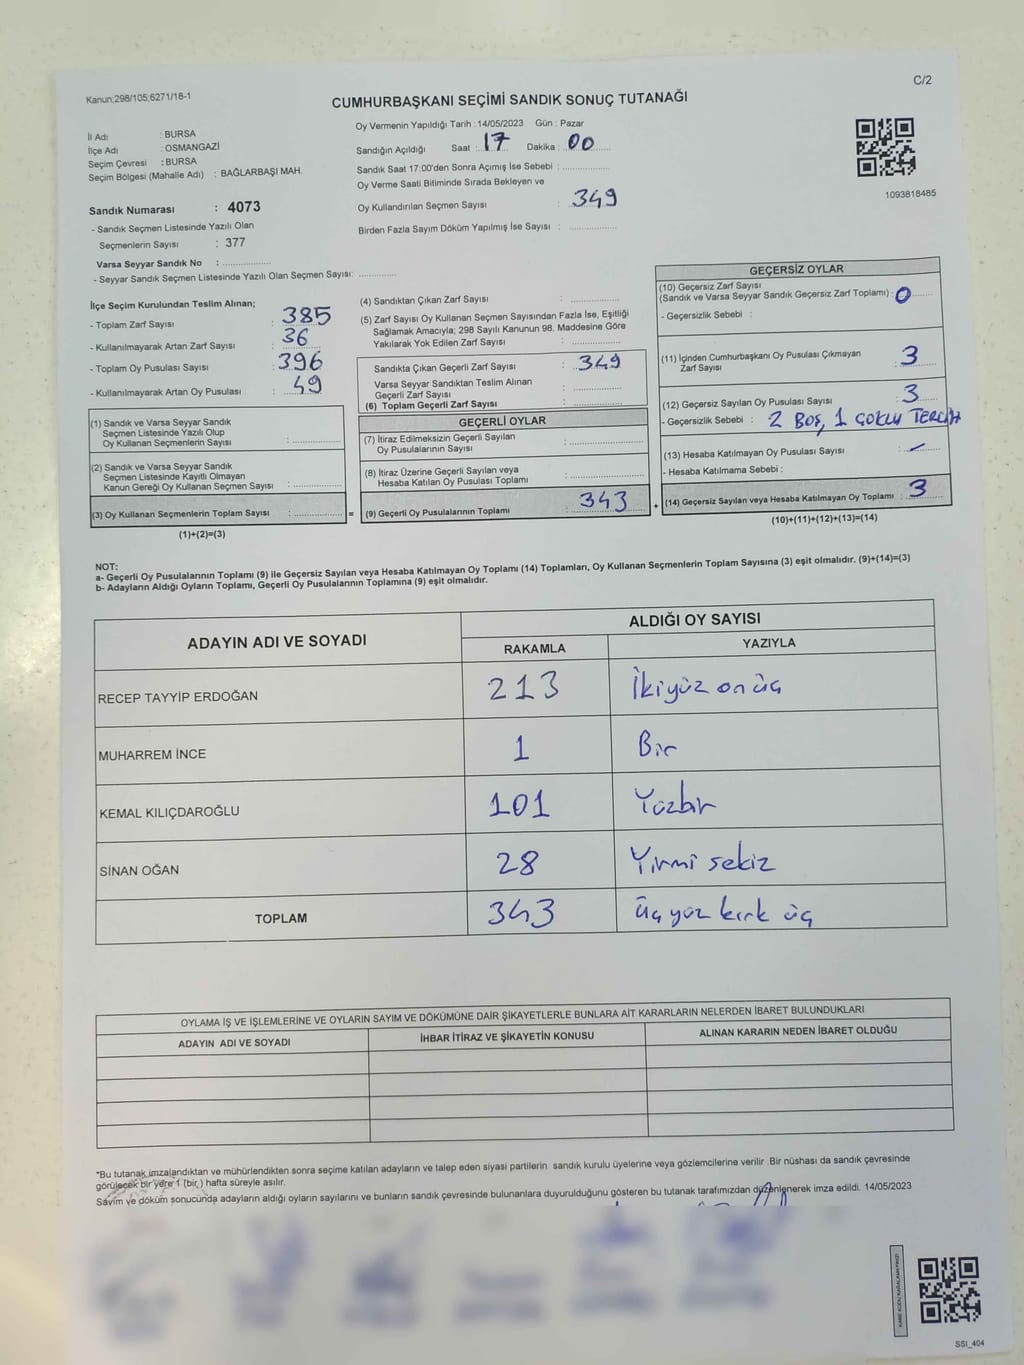 Kanun;298/105;6271/16-1
C/2
CUMHURBAŞKANI SEÇİMİ SANDIK SONUÇ TUTANAĞI
İl Adı : BURSA
İlçe Adı : OSMANGAZİ
Seçim Çevresi : BURSA
Seçim Bölgesi (Mahalle Adı) : BAĞLARBAŞI MAH.
Sandık Numarası : 4073
- Sandık Seçmen Listesinde Yazılı Olan
Seçmenlerin Sayısı : 377
Varsa Seyyar Sandık No :
- Seyyar Sandık Seçmen Listesinde Yazılı Olan Seçmen Sayısı:
Oy Vermenin Yapıldığı Tarih : 14/05/2023 Gün : Pazar
Sandığın Açıldığı Saat : 17 Dakika : 00
Sandık Saat 17:00'den Sonra Açımış İse Sebebi :
Oy Verme Saati Bitiminde Sırada Bekleyen ve
Oy Kullandırılan Seçmen Sayısı : 349
Birden Fazla Sayım Döküm Yapılmış İse Sayısı :
1093818485
İlçe Seçim Kurulundan Teslim Alınan;
- Toplam Zarf Sayısı : 385
- Kullanılmayarak Artan Zarf Sayısı : 36
- Toplam Oy Pusulası Sayısı : 396
- Kullanılmayarak Artan Oy Pusulası : 49
(1) Sandık ve Varsa Seyyar Sandık
Seçmen Listesinde Yazılı Olup
Oy Kullanan Seçmenlerin Sayısı :
(2) Sandık ve Varsa Seyyar Sandık
Seçmen Listesinde Kayıtlı Olmayan
Kanun Gereği Oy Kullanan Seçmen Sayısı :
(3) Oy Kullanan Seçmenlerin Toplam Sayısı : =
(1)+(2)=(3)
(4) Sandıktan Çıkan Zarf Sayısı :
(5) Zarf Sayısı Oy Kullanan Seçmen Sayısından Fazla İse, Eşitliği
Sağlamak Amacıyla; 298 Sayılı Kanunun 98. Maddesine Göre
Yakılarak Yok Edilen Zarf Sayısı :
Sandıkta Çıkan Geçerli Zarf Sayısı : 349
Varsa Seyyar Sandıktan Teslim Alınan
Geçerli Zarf Sayısı :
(6) Toplam Geçerli Zarf Sayısı :
GEÇERLİ OYLAR
(7) İtiraz Edilmeksizin Geçerli Sayılan
Oy Pusulalarının Sayısı :
(8) İtiraz Üzerine Geçerli Sayılan veya
Hesaba Katılan Oy Pusulası Toplamı :
(9) Geçerli Oy Pusulalarının Toplamı : 343 +
GEÇERSİZ OYLAR
(10) Geçersiz Zarf Sayısı
(Sandık ve Varsa Seyyar Sandık Geçersiz Zarf Toplamı) : 0
- Geçersizlik Sebebi :
(11) İçinden Cumhurbaşkanı Oy Pusulası Çıkmayan
Zarf Sayısı : 3
(12) Geçersiz Sayılan Oy Pusulası Sayısı : 3
- Geçersizlik Sebebi : 2 BOŞ, 1 ÇOKLU TERCİH
(13) Hesaba Katılmayan Oy Pusulası Sayısı : -
- Hesaba Katılmama Sebebi :
(14) Geçersiz Sayılan veya Hesaba Katılmayan Oy Toplamı : 3
(10)+(11)+(12)+(13)=(14)
NOT:
a- Geçerli Oy Pusulalarının Toplamı (9) ile Geçersiz Sayılan veya Hesaba Katılmayan Oy Toplamı (14) Toplamları, Oy Kullanan Seçmenlerin Toplam Sayısına (3) eşit olmalıdır. (9)+(14)=(3)
b- Adayların Aldığı Oyların Toplamı, Geçerli Oy Pusulalarının Toplamına (9) eşit olmalıdır.
ADAYIN ADI VE SOYADI
ALDIĞI OY SAYISI
RAKAMLA YAZIYLA
RECEP TAYYİP ERDOĞAN 213 İkiyüz on üç
MUHARREM İNCE 1 Bir
KEMAL KILIÇDAROĞLU 101 Yüzbir
SİNAN OĞAN 28 Yirmi sekiz
TOPLAM 343 üç yüz kırk üç
OYLAMA İŞ VE İŞLEMLERİNE VE OYLARIN SAYIM VE DÖKÜMÜNE DAİR ŞİKAYETLERLE BUNLARA AİT KARARLARIN NELERDEN İBARET BULUNDUKLARI
ADAYIN ADI VE SOYADI İHBAR İTİRAZ VE ŞİKAYETİN KONUSU ALINAN KARARIN NEDEN İBARET OLDUĞU
*Bu tutanak imzalandıktan ve mühürlendikten sonra seçime katılan adayların ve talep eden siyasi partilerin sandık kurulu üyelerine veya gözlemcilerine verilir .Bir nüshası da sandık çevresinde
görülecek bir yere 1 (bir ) hafta süreyle asılır.
Sayım ve döküm sonucunda adayların aldığı oyların sayılarını ve bunların sandık çevresinde bulunanlara duyurulduğunu gösteren bu tutanak tarafımızdan düzenlenerek imza edildi. 14/05/2023
SSI_404